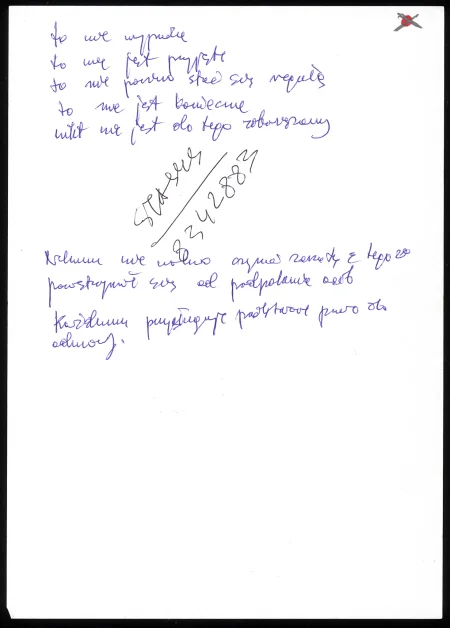 to nie wypada
to nie jest przyjęte
to nie powinno stać się regułą
to nie jest konieczne
nikt nie jest do tego zobowiązany
8342883
Nikomu nie wolno czynić zarzutu z tego że
powstrzymał się od podpalania osób
Każdemu przysługuje podstawowe prawo do
odmowy.